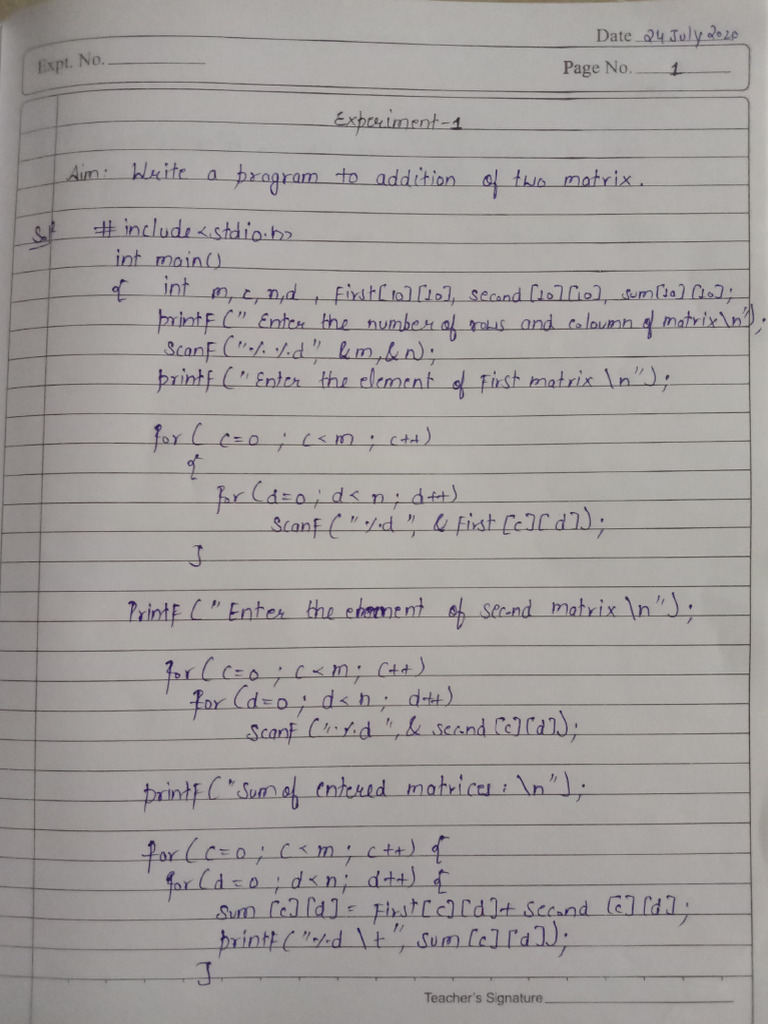 Date 24 July 2020
Expt. No.
Page No. 1
Experiment-1
Aim: Write a program to addition of two matrix.
Sol #include<stdio.h>
int main()
{ int m, c, n, d, first[10][10], second[10][10], sum[10][10];
printf(" Enter the number of rows and coloumn of matrix\n");
scanf("% %d", &m, &n);
printf("Enter the element of First matrix \n");
for( c=0 ; c<m ; c++)
{
for(d=0; d<n ; d++)
scanf("%d", &first[c][d]);
}
Printf("Enter the element of second matrix \n");
for( c=0 ; c<m ; c++)
for(d=0 ; d<n ; d++)
scanf("%d", & second[c][d]);
printf("Sum of entered matrices: \n");
for(c=0 ; c<m ; c++) {
for(d=0 ; d<n ; d++) {
sum [c][d] = first[c][d]+ second [c][d];
printf("%d \t", sum[c][d]);
}
Teacher's Signature